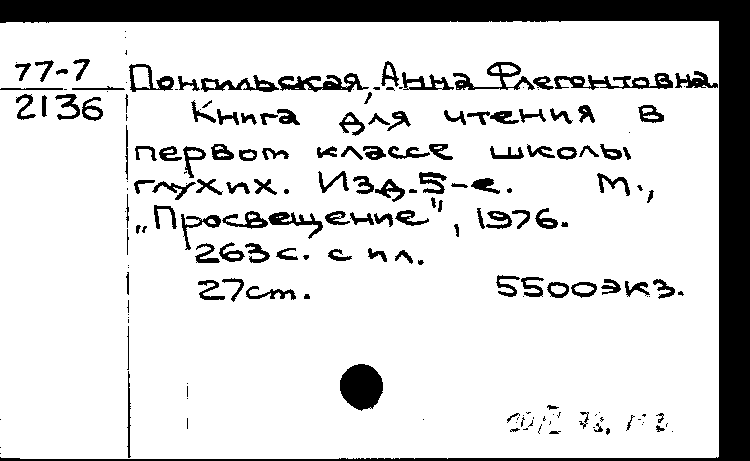 77-7
2136
Понгильская, Анна Флегонтовна.
Книга для чтения в
первом классе школы
глухих. Изд. 5-е. М.,
„Просвещение", 1976.
263 с. с ил.
27 см. 5500 экз.